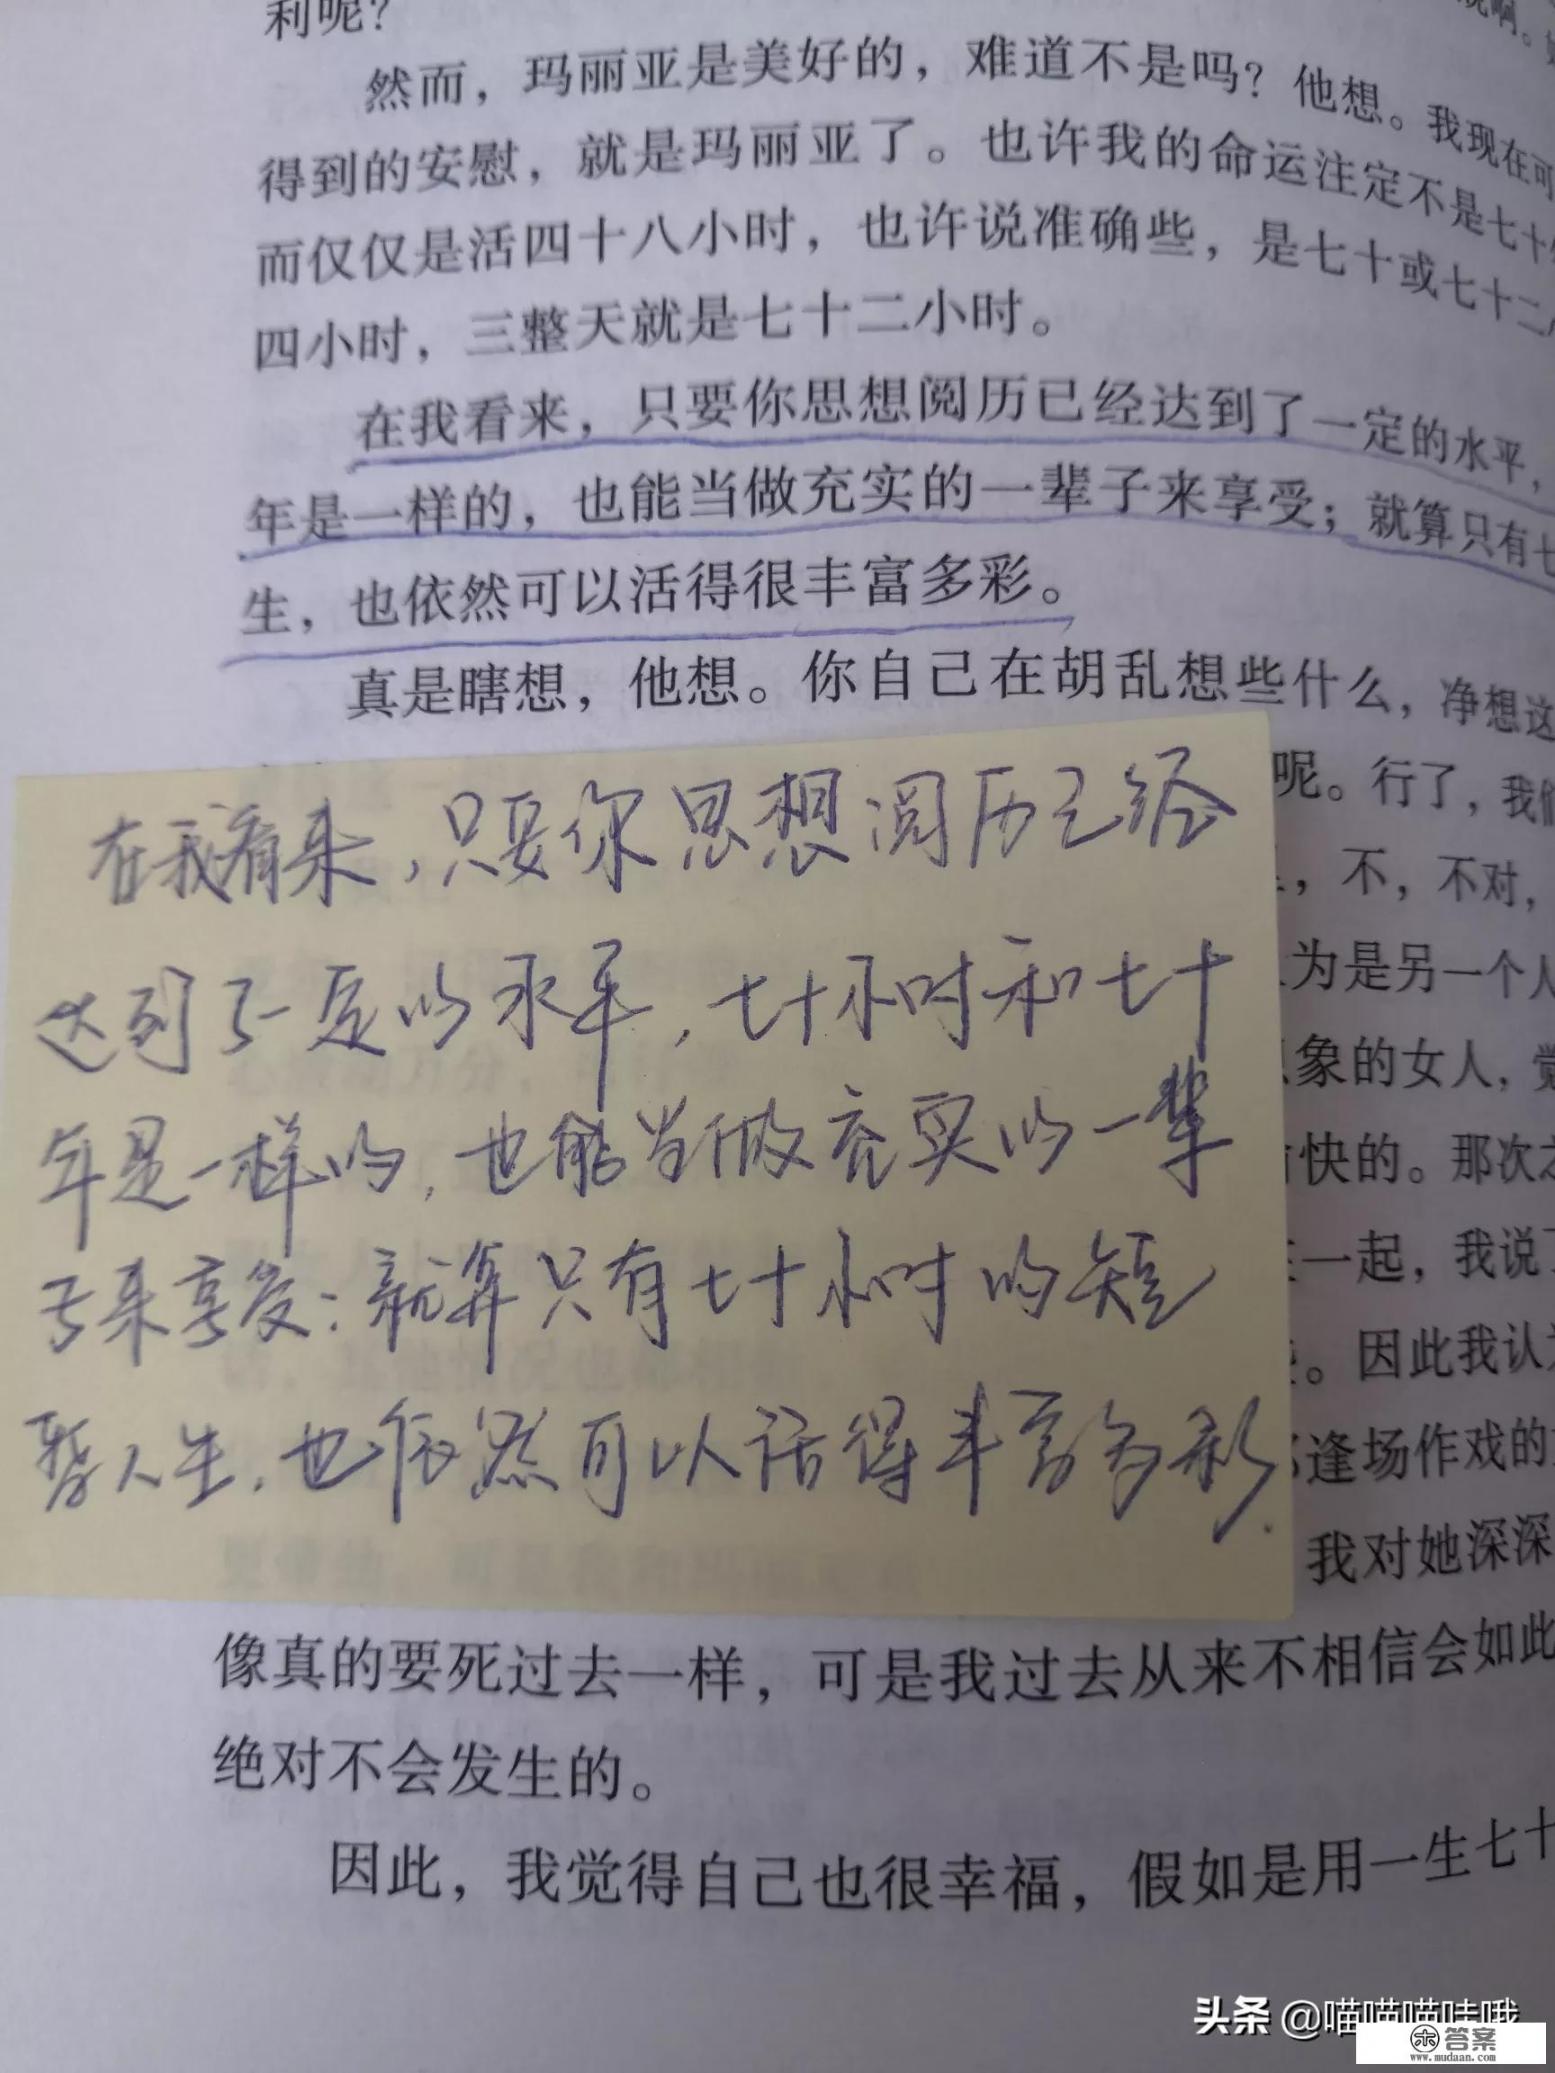 利呢？
然而，玛丽亚是美好的，难道不是吗？他想。我现在可
得到的安慰，就是玛丽亚了。也许我的命运注定不是七十
而仅仅是活四十八小时，也许说准确些，是七十或七十二
四小时，三整天就是七十二小时。
在我看来，只要你思想阅历已经达到了一定的水平，
年是一样的，也能当做充实的一辈子来享受；就算只有七
生，也依然可以活得很丰富多彩。
真是瞎想，他想。你自己在胡乱想些什么，净想这
呢。行了，我们
，不，不对，
为是另一个人
象的女人，觉
快的。那次
一起，我说了
。因此我认为
逢场作戏的
我对她深深
在我看来，只要你思想阅历已经
达到了一定的水平，七十小时和七十
年是一样的，也能当做充实的一辈
子来享受：就算只有七十小时的短
暂人生，也依然可以活得丰富多彩.
像真的要死过去一样，可是我过去从来不相信会如此
绝对不会发生的。
因此，我觉得自己也很幸福，假如是用一生七十
头条 @喵喵喵哇哦
答案
www.mudaan.com